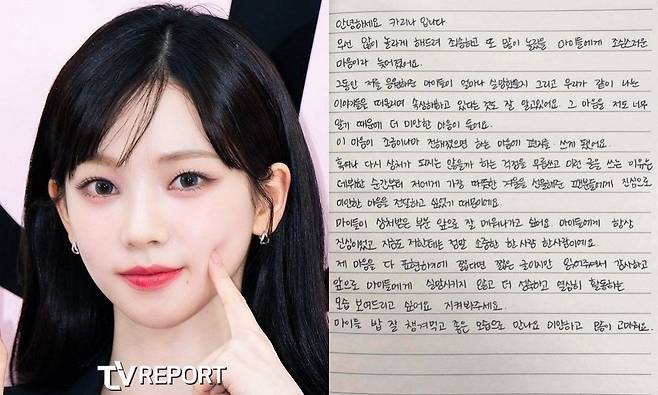 안녕하세요 카리나 입니다
우선 많이 놀라게 해드려 죄송하고 또 많이 놀랐을 마이들에게 조심스러운
마음이라 늦어졌어요.
그동안 저를 응원해준 마이들이 얼마나 실망했을지 그리고 우리가 같이 나눈
이야기들을 떠올리며 속상해하고 있다는것도 잘 알고있어요. 그 마음을 저도 너무
알기 때문에 더 미안한 마음이 들어요.
이 마음이 조금이나마 전해졌으면 하는 마음에 편지를 쓰게 됐어요.
혹여나 다시 상처가 되지는 않을까 하는 걱정을 무릅쓰고 이런 글을 쓰는 이유는
데뷔한 순간부터 저에게 가장 따뜻한 겨울을 선물해준 팬분들에게 진심으로
미안한 마음을 전달하고 싶었기 때문이에요.
마이들이 상처받은 부분 앞으로 잘 메워나가고 싶어요. 마이들에게 항상
진심이었고 지금도 저한테는 정말 소중한 한 사람 한사람이에요.
제 마음을 다 표현하기에 짧다면 짧은 글이지만 읽어주셔서 감사하고
앞으로 마이들에게 실망시키지 않고 더 성숙하고 열심히 활동하는
모습 보여드리고 싶어요 지켜봐주세요.
마이들 밥 잘 챙겨먹고 좋은 모습으로 만나요 미안하고 많이 고마워요.
TV REPORT